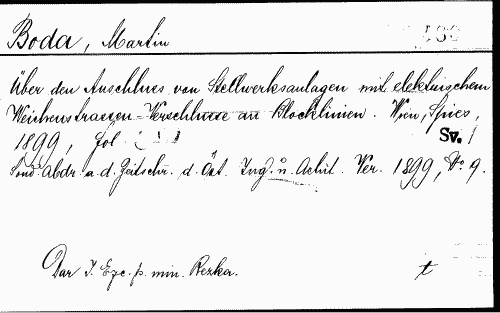 Boda, Martin
Über den Anschluss von Stellwerksanlagen mit elektrischem
Weichenstrassen-Verschlusse an Blocklinien. Wien, Spies,
1899, fol. Sv. 1
Sond. Abdr. a. d. Zeitschr. d. Öst. Ing. u. Achit. Ver. 1899, No 9.
Dar J. Exc. p. min. Rezka. t